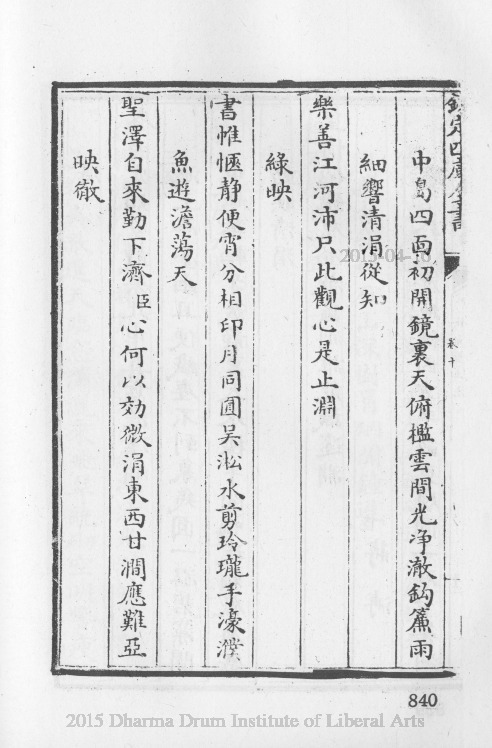 欽定四庫全書
卷十
中島四面初開鏡裏天俯檻雲間光浄澈鈎簾雨
細響清涓從知
樂善江河沛只此觀心是止淵
綠映
書帷愜静便宵分相印月同圓吴淞水剪玲瓏手濠濮
魚遊澹蕩天
聖澤自來勤下濟臣心何以効微涓東西甘澗應難亞
映徹
840
2015-04-10
2015 Dharma Drum Institute of Liberal Arts